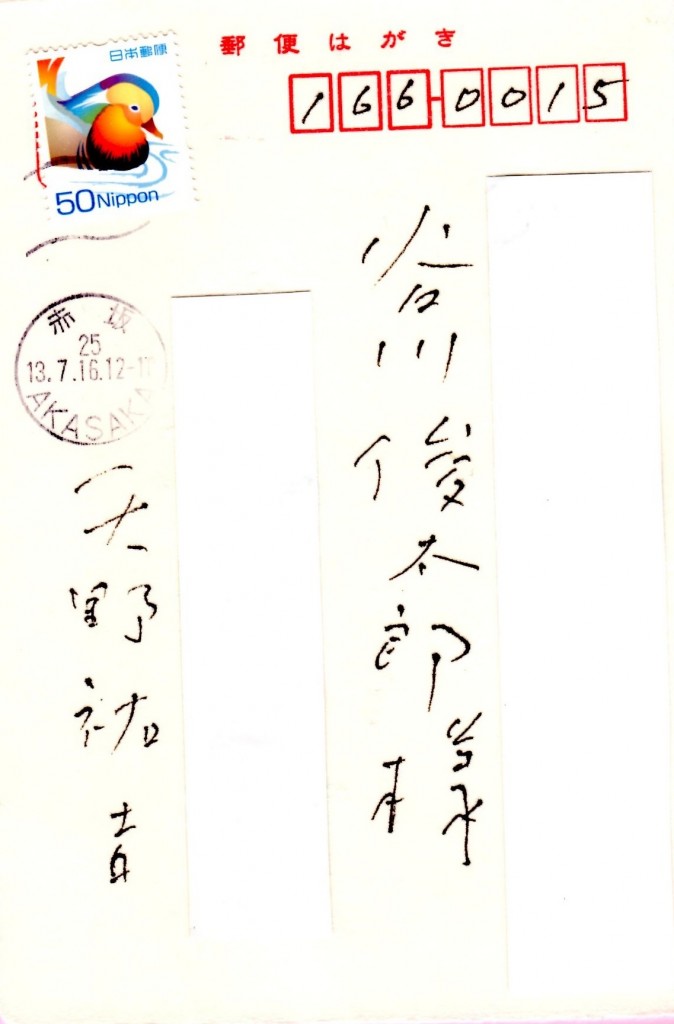 郵便はがき
166-0015
日本郵便
50 Nippon
谷川俊太郎様
赤坂
25
13.7.16.12-1
AKASAKA
天野祐吉